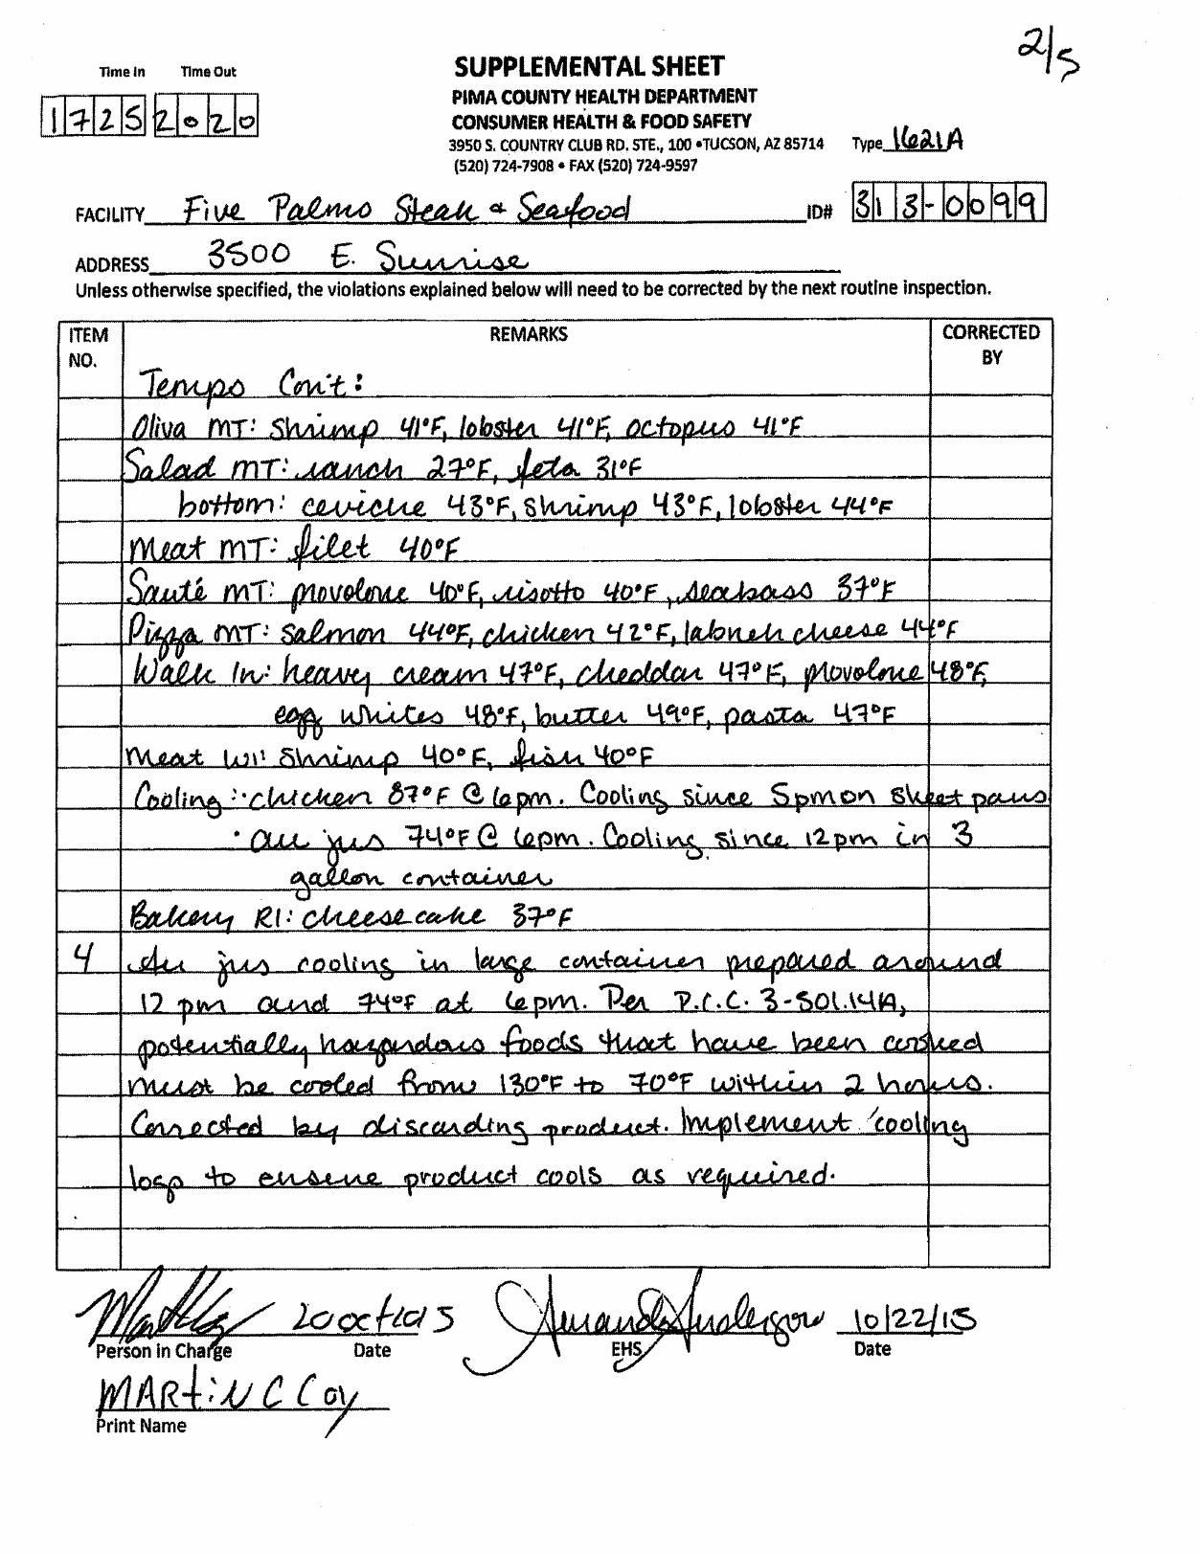 2/5
Time In Time Out
1725 2020
SUPPLEMENTAL SHEET
PIMA COUNTY HEALTH DEPARTMENT
CONSUMER HEALTH & FOOD SAFETY
3950 S. COUNTRY CLUB RD. STE., 100 •TUCSON, AZ 85714
(520) 724-7908 • FAX (520) 724-9597
Type 1621A
FACILITY Five Palms Steak & Seafood ID# 313-0099
ADDRESS 3500 E. Sunrise
Unless otherwise specified, the violations explained below will need to be corrected by the next routine inspection.
ITEM NO. REMARKS CORRECTED BY
Temps Con't:
Oliva MT: Shrimp 41°F, lobster 41°F, octopus 41°F
Salad MT: ranch 27°F, feta 31°F
bottom: ceviche 43°F, shrimp 43°F, lobster 44°F
Meat MT: filet 40°F
Sauté MT: provolone 40°F, risotto 40°F, seabass 37°F
Pizza MT: salmon 44°F, chicken 42°F, labneh cheese 44°F
Walk In: heavy cream 47°F, cheddar 47°F, provolone 48°F,
egg whites 48°F, butter 49°F, pasta 47°F
Meat WI: Shrimp 40°F, fish 40°F
Cooling: • chicken 87°F @ 6pm. Cooling since 5pm on sheet pans
• au jus 74°F @ 6pm. Cooling since 12pm in 3
gallon container
Bakery RI: cheesecake 37°F
4 Au jus cooling in large container prepared around
12 pm and 74°F at 6pm. Per P.C.C. 3-501.14A,
potentially hazardous foods that have been cooked
must be cooled from 130°F to 70°F within 2 hours.
Corrected by discarding product. Implement cooling
logs to ensure product cools as required.
10/22/15
Person in Charge Date EHS Date
MARtiN C Coy
Print Name